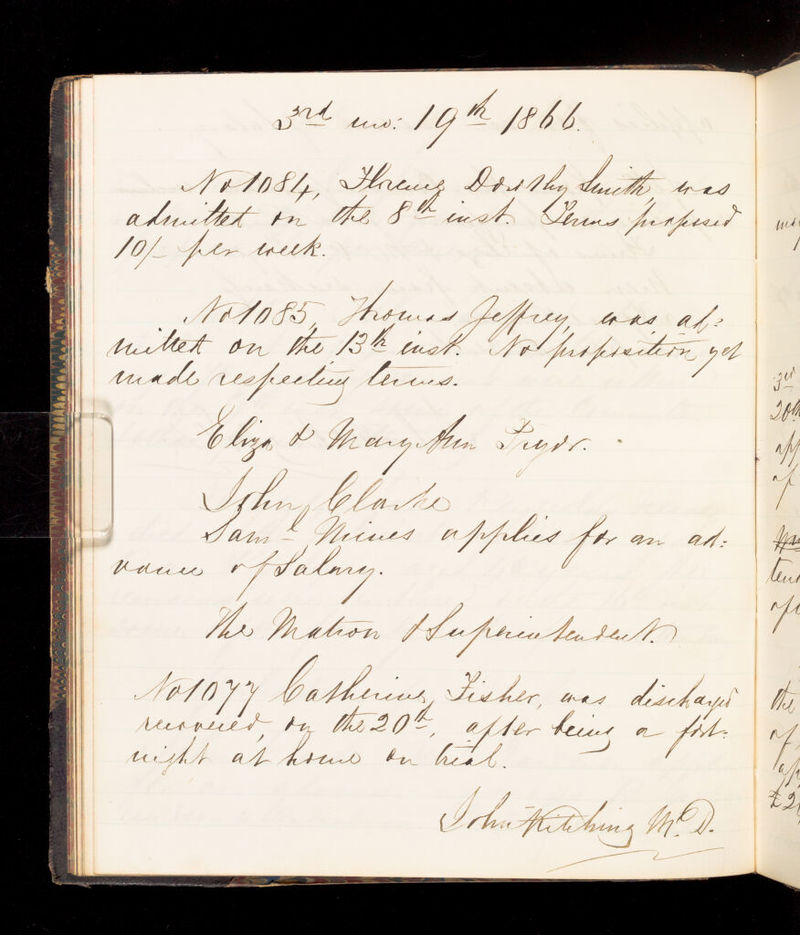 3rd mo: 19th 1866.
No 1084, Florence Dorothy Smith, was
admitted on the 8th inst. Terms proposed
10/- per week.
No 1085, Thomas Jeffrey, was ad:
mitted on the 13th inst. No proposition yet
made respecting terms.
Eliza & Mary Ann Pryor.
John Clarke
Saml Mines applies for an ad:
vance of Salary.
The Matron & Superintendent.
No 1077 Catherine Fisher, was discharged
recovered, on the 20th, after being a fort:
night at home on trial.
John Kitching M.D.
3rd
20th
app
of
tend
the
of